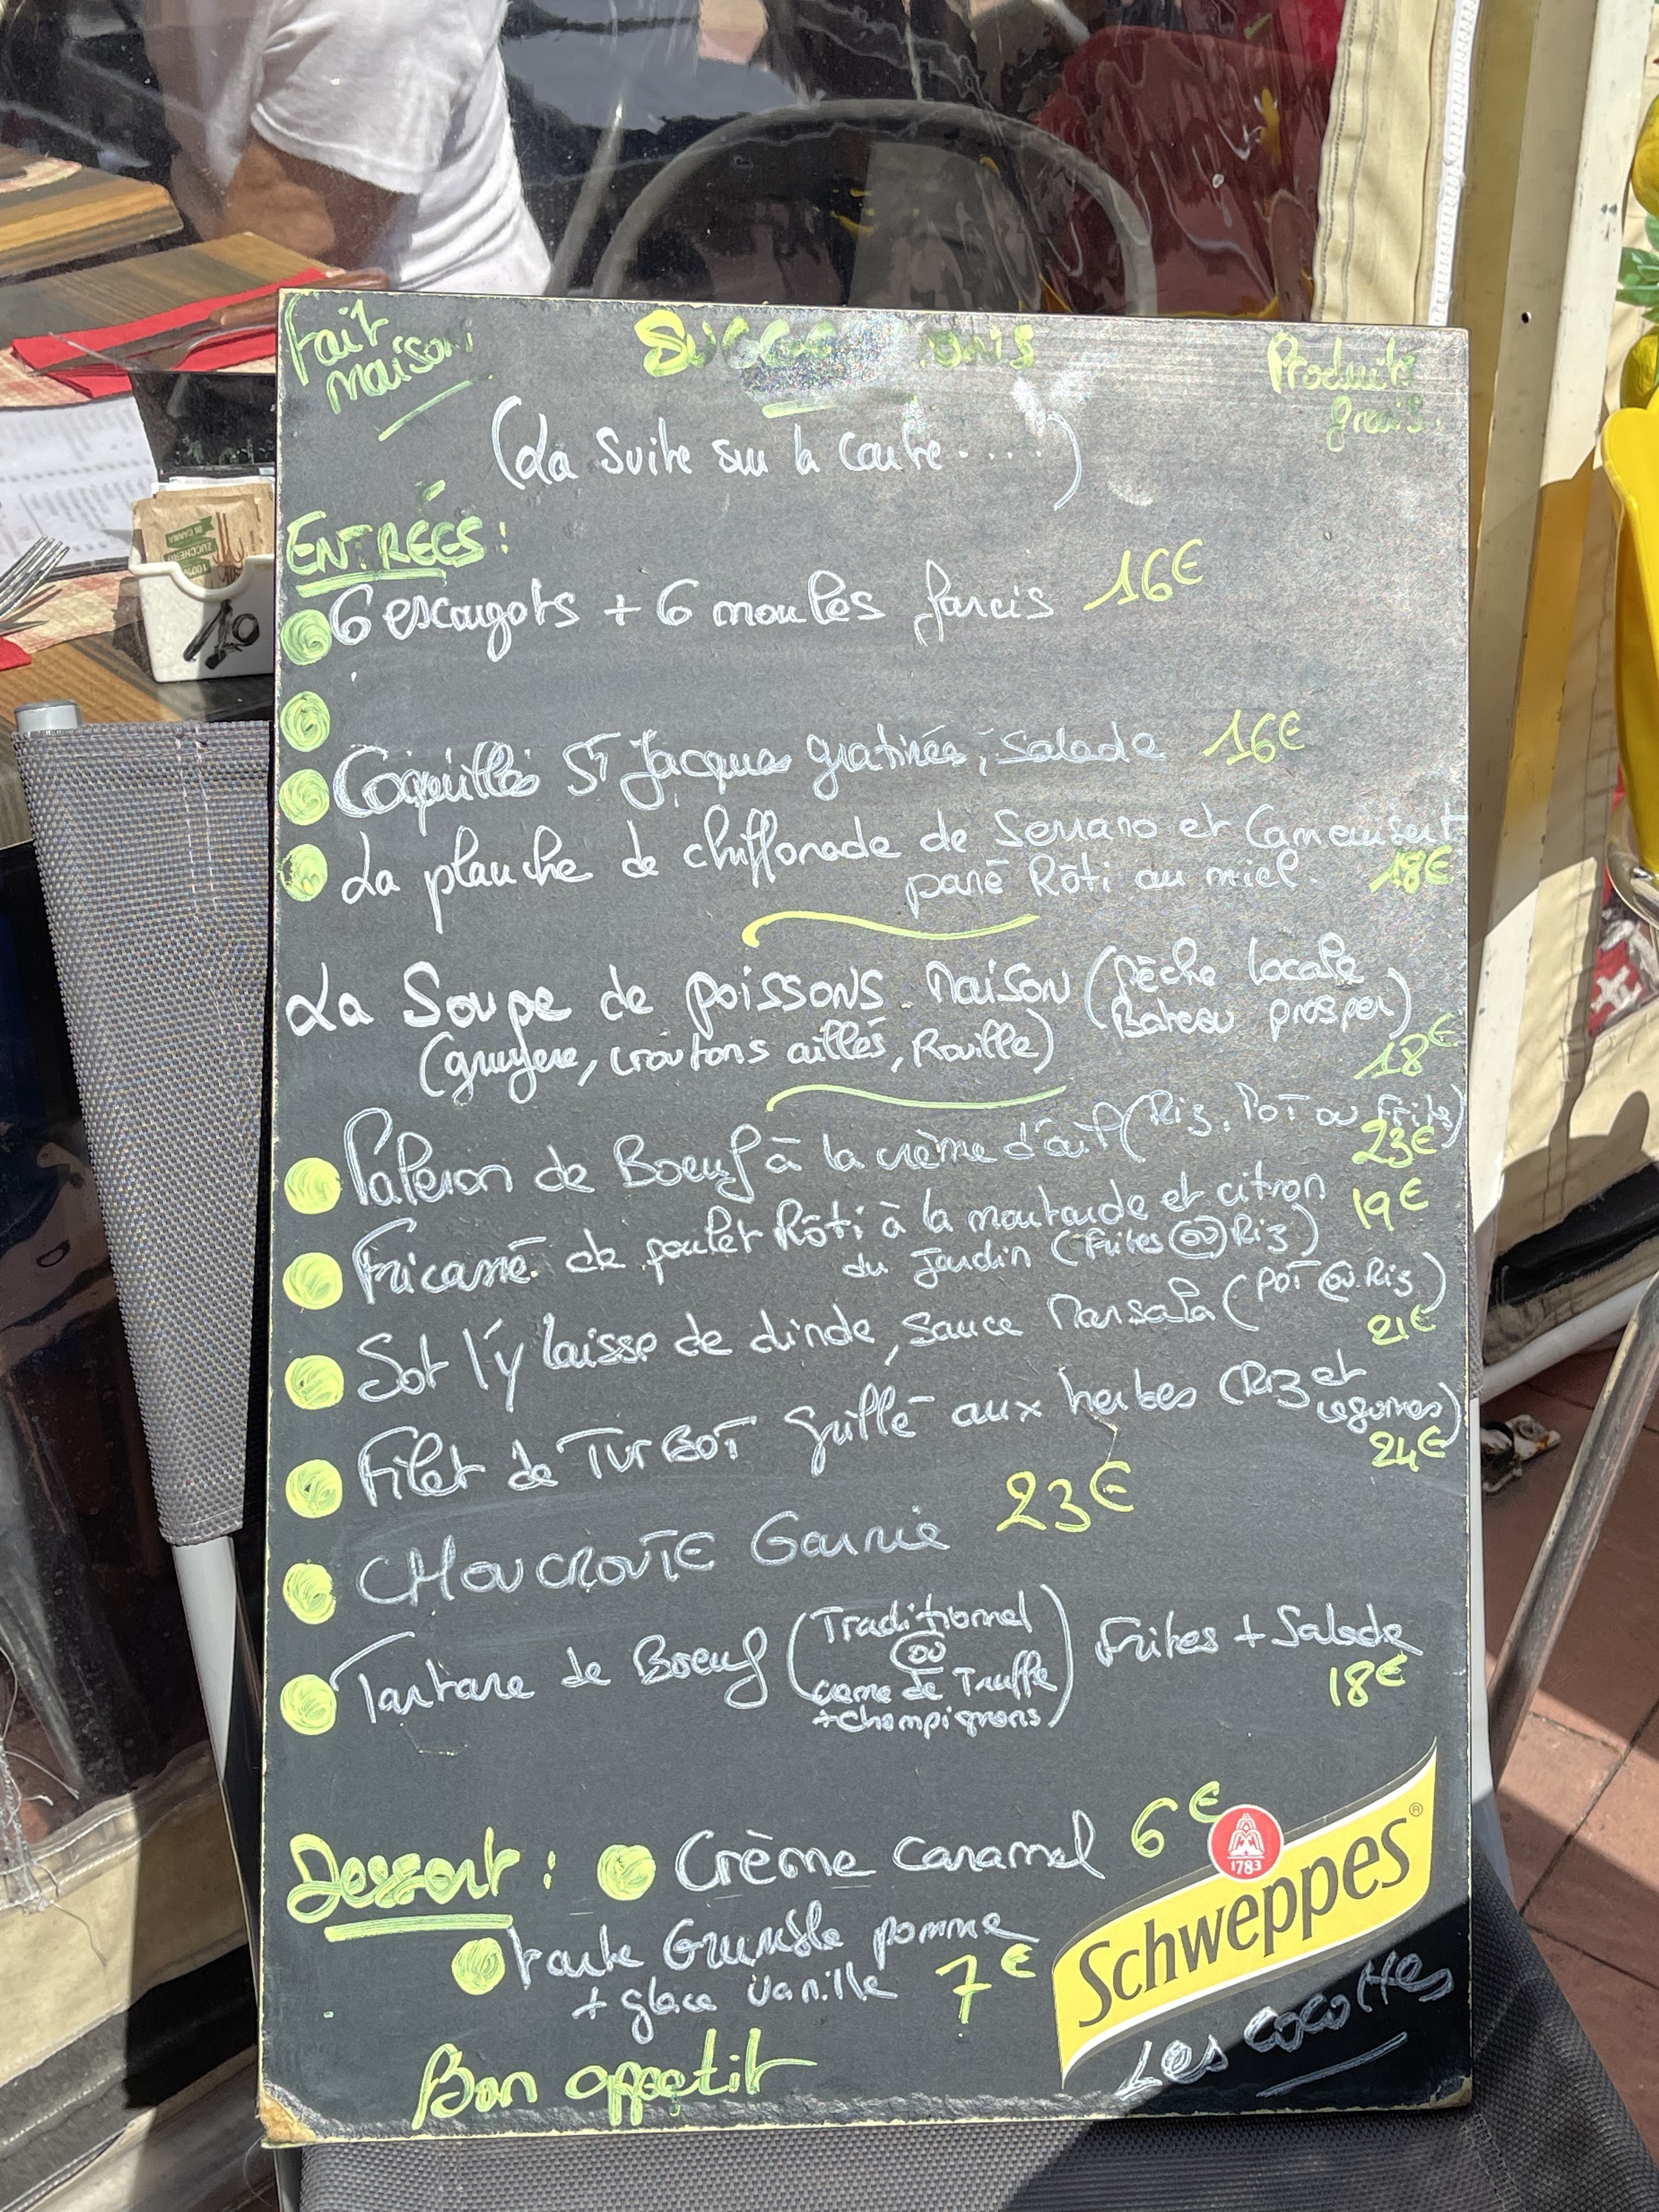 Fait
maison
Produits
frais.
(La Suite sur la Carte.....)
ENTRÉES :
6 escargots + 6 moules farcis 16€
Coquilles St Jacques gratinés, Salade 16€
La planche de chiffonade de Serrano et Camembert
pané Rôti au miel. 18€
La Soupe de poissons Maison (Pêche locale
Bateau prosper)
(gruyère, croutons aillés, Rouille)
18€
Paleron de Boeuf à la crème d'ail (Riz, POT ou Frites)
23€
Fricassé de poulet Rôti à la moutarde et citron 19€
du Jardin (Frites ou Riz)
Sot l'y laisse de dinde, sauce Marsala (POT ou Riz)
21€
Filet de TURBOT Grillé aux herbes (Riz et
légumes)
24€
CHOUCROUTE Garnie 23€
Tartare de Boeuf (Traditionnel
ou
crème de Truffe
+champignons) Frites + Salade
18€
Dessert : Crème Caramel 6€
tarte Grumble pomme
+ glace vanille 7€
1783
Schweppes®
Les cocottes
Bon appetit